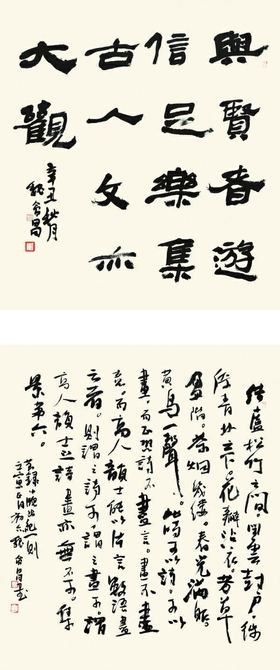 與賢者遊
信足樂集
古人文亦
大觀
辛丑秋月
結廬松竹之間閒雲封戶徙
倚青林之下花瓣沾衣芳草
盈階茶烟幾縷春光滿眼
黃鳥一聲此時可以詩可以
畫而正恐詩不盡言畫不盡
意而高人韻士能以片言數語盡
之者則謂之詩可謂之畫可則謂
高人韻士之詩畫亦無不可集
景第六
錄小窗幽記一則